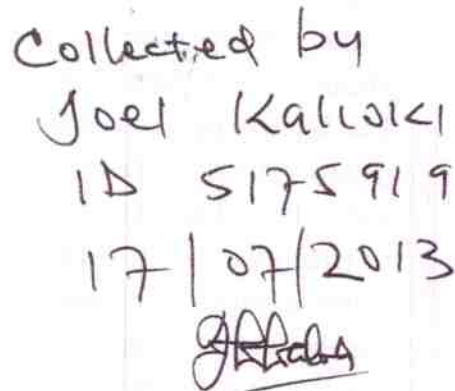 Collected by
Joel Kalioki
ID 5175919
17/07/2013